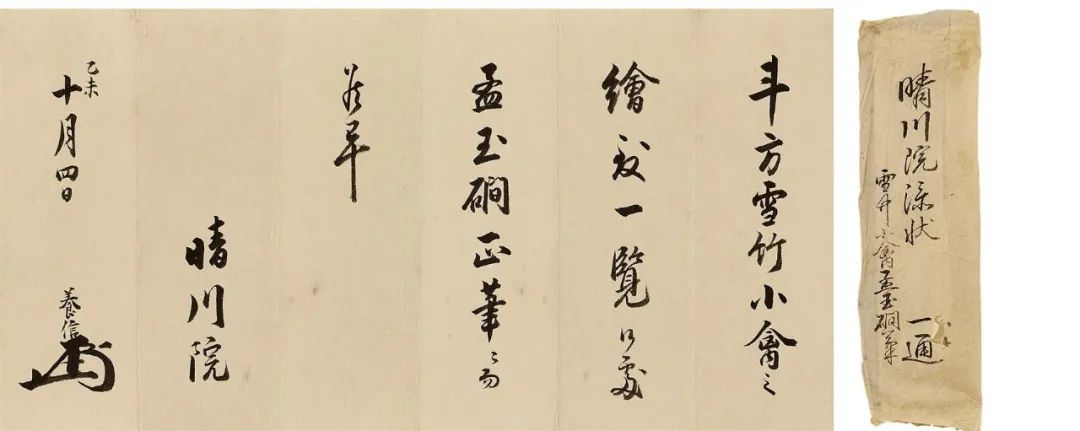 斗方雪竹小禽之
繪致一覧候處
孟玉磵正筆ニ而
晴川院
養信
乙未
十月四日
晴川院添状 一通
雪竹小禽孟玉磵筆